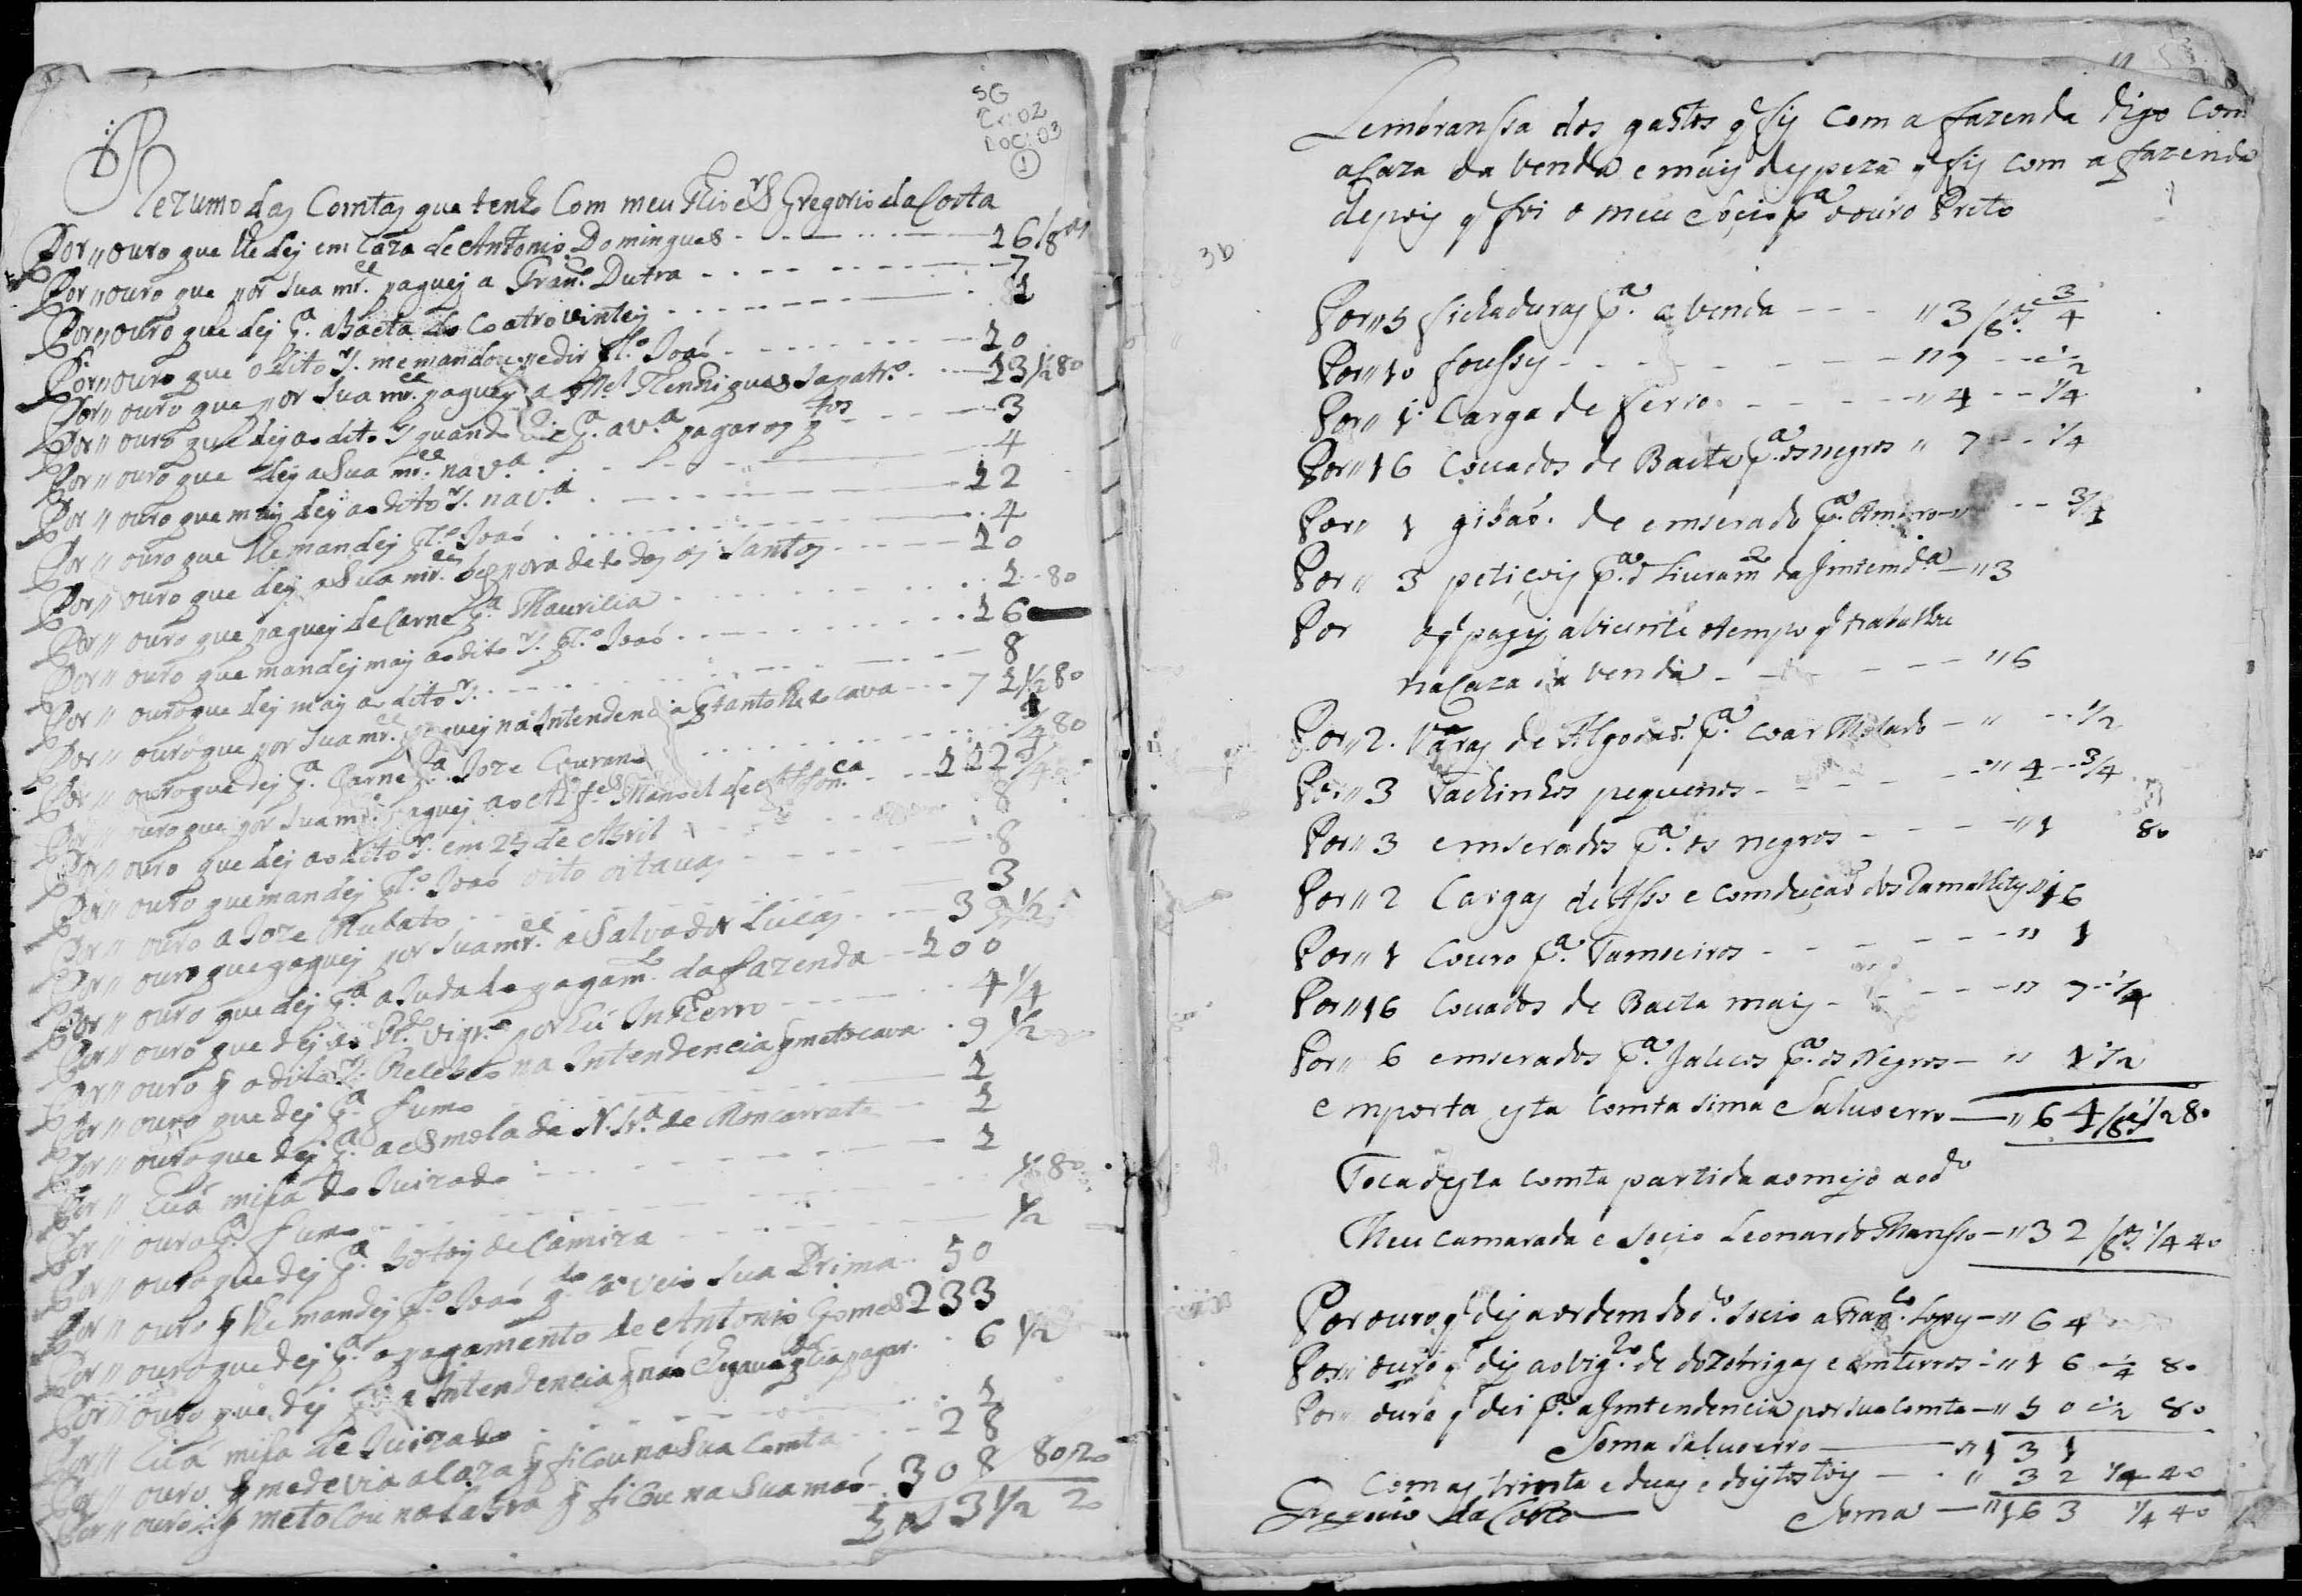 SG
Cx: 02
DOC: 03
1
Rezumo das Comtas que tenho Com meu Thio e Sr Gregorio da Costa
Por ouro que lhe dej em Caza de Antonio Domingues 16/8as
Por ouro que por Sua mce. paguej a Franco. Dutra 7
Por ouro que dej pa. a Baeta do Coatro vinteis 1
Por ouro que o dito Sr. me mandou pedir plo. Joaõ 10
Por ouro que por Sua mce. paguej a Mel Henriques Sapatro. 13 1/2 80
Por ouro que dej ao dito Sr quando hia pa. a va. pagar os qtos 3
Por ouro que dej a Sua mce. na va. 4
Por ouro que mais dej ao dito Sr. na va. 12
Por ouro que lhe mandej plo. Joaõ 4
Por ouro que dej a Sua mce. bespora de todos os Santos 10
Por ouro que paguej de Carne pa. Maurilia 1 80
Por ouro que mandej mais ao dito Sr. plo. Joaõ 16
Por ouro que dej mais ao dito Sr. 8
Por ouro que por Sua mce. paguej na Intendencia qtanto lhe tocava 71 1/2 80
Por ouro que dej pa. Carne pa. Joze Courano 1/4 80
Por ouro que por Sua mce. paguej ao Alfes Manoel de Affonca 112 3/4
Por ouro que dej ao dito Sr. em 25 de Abril 8
Por ouro que mandej plo. Joaõ oito oitavas 8
Por ouro a Joze Mulato 3
Por ouro que paguej por Sua mce a Salvador Lucas 39 1/2
Por ouro que dej pa. ajuda do pagamto. da fazenda 100
Por ouro que dej ao Pe. Vigro. por hũ Interro 4 1/4
Por ouro q o dito Sr. Recebeo na Intendencia q me tocava 9 1/2
Por ouro que dej pa. fumo 1
Por ouro que dej pa. a esmola da N. Sra. de Moncarrate 1
Por huã missa do Juizado 1
Por ouro pa. fumo 1/2 80
Por ouro que dej pa. botois de Camiza 1/2
Por ouro q lhe mandej plo. Joaõ qdo. cá veio Sua Prima 50
Por ouro que dej pa. o pagamento de Antonio Gomes 233
Por ouro que dej pa. a Intendencia q naõ chegava qdo hia pagar 6 1/2
Por huã missa de Juizado 1
Por ouro q me devia a Caza q ficou na Sua Comta 28
Por ouro q me tocou na Lavra q ficou na Sua maõ 308 80/20
3 1/2 20
Lembranssa dos gastos q fis Com a fazenda digo Com
a Caza da benda e mais despeza q fis com a fazenda
depois q foi o meu Socio pa o ouro Preto
Por 5 fichaduras pa. a benda 3/8as 3/4
Por 10 foussis 7 1/2
Por 1 Carga de ferro 4 1/4
Por 16 Couados de Baeta pa. os negros 7 1/4
Por 1 gibaõ. de emserado pa. 3/4
Por 3 petiçois pa. o Livramto da Imtemda 3
Por o q pagej a Vicente o tempo q trabalhou
na Caza da benda 6
Por 2. Varas de Algodaõ. pa. coar Melado 1/2
Por 3 Tachinhos pequenos 4 3/4
Por 3 emserados pa. os negros 1 80
Por 2 Cargas de Asso e comduçaõ dos 16
Por 1 Couro pa. Tamoeiros 1
Por 16 Couados de Baeta mais 7 1/4
Por 6 emserados pa. Jalecos pa. os Negros 1 1/2
emporta esta Comta asima Saluo erro 64/8as 1/2 80
Toca desta comta partida ao mejo ao do
Meu camarada e Socio Leonardo Mansso 32/8as 1/4 40
Por ouro q dej a ordem do do. Socio a Franco. Lopes 64
Por ouro q dej ao Vigro de dezobrigas e emterros 16 1/4 80
Por ouro q dei pa. a Imtendencia por sua Comta 50 1/2 80
Soma saluo erro 131
Com as trinta e duas e dois tostois 32 1/4 40
Gregorio da Costa Soma 163 1/4 40